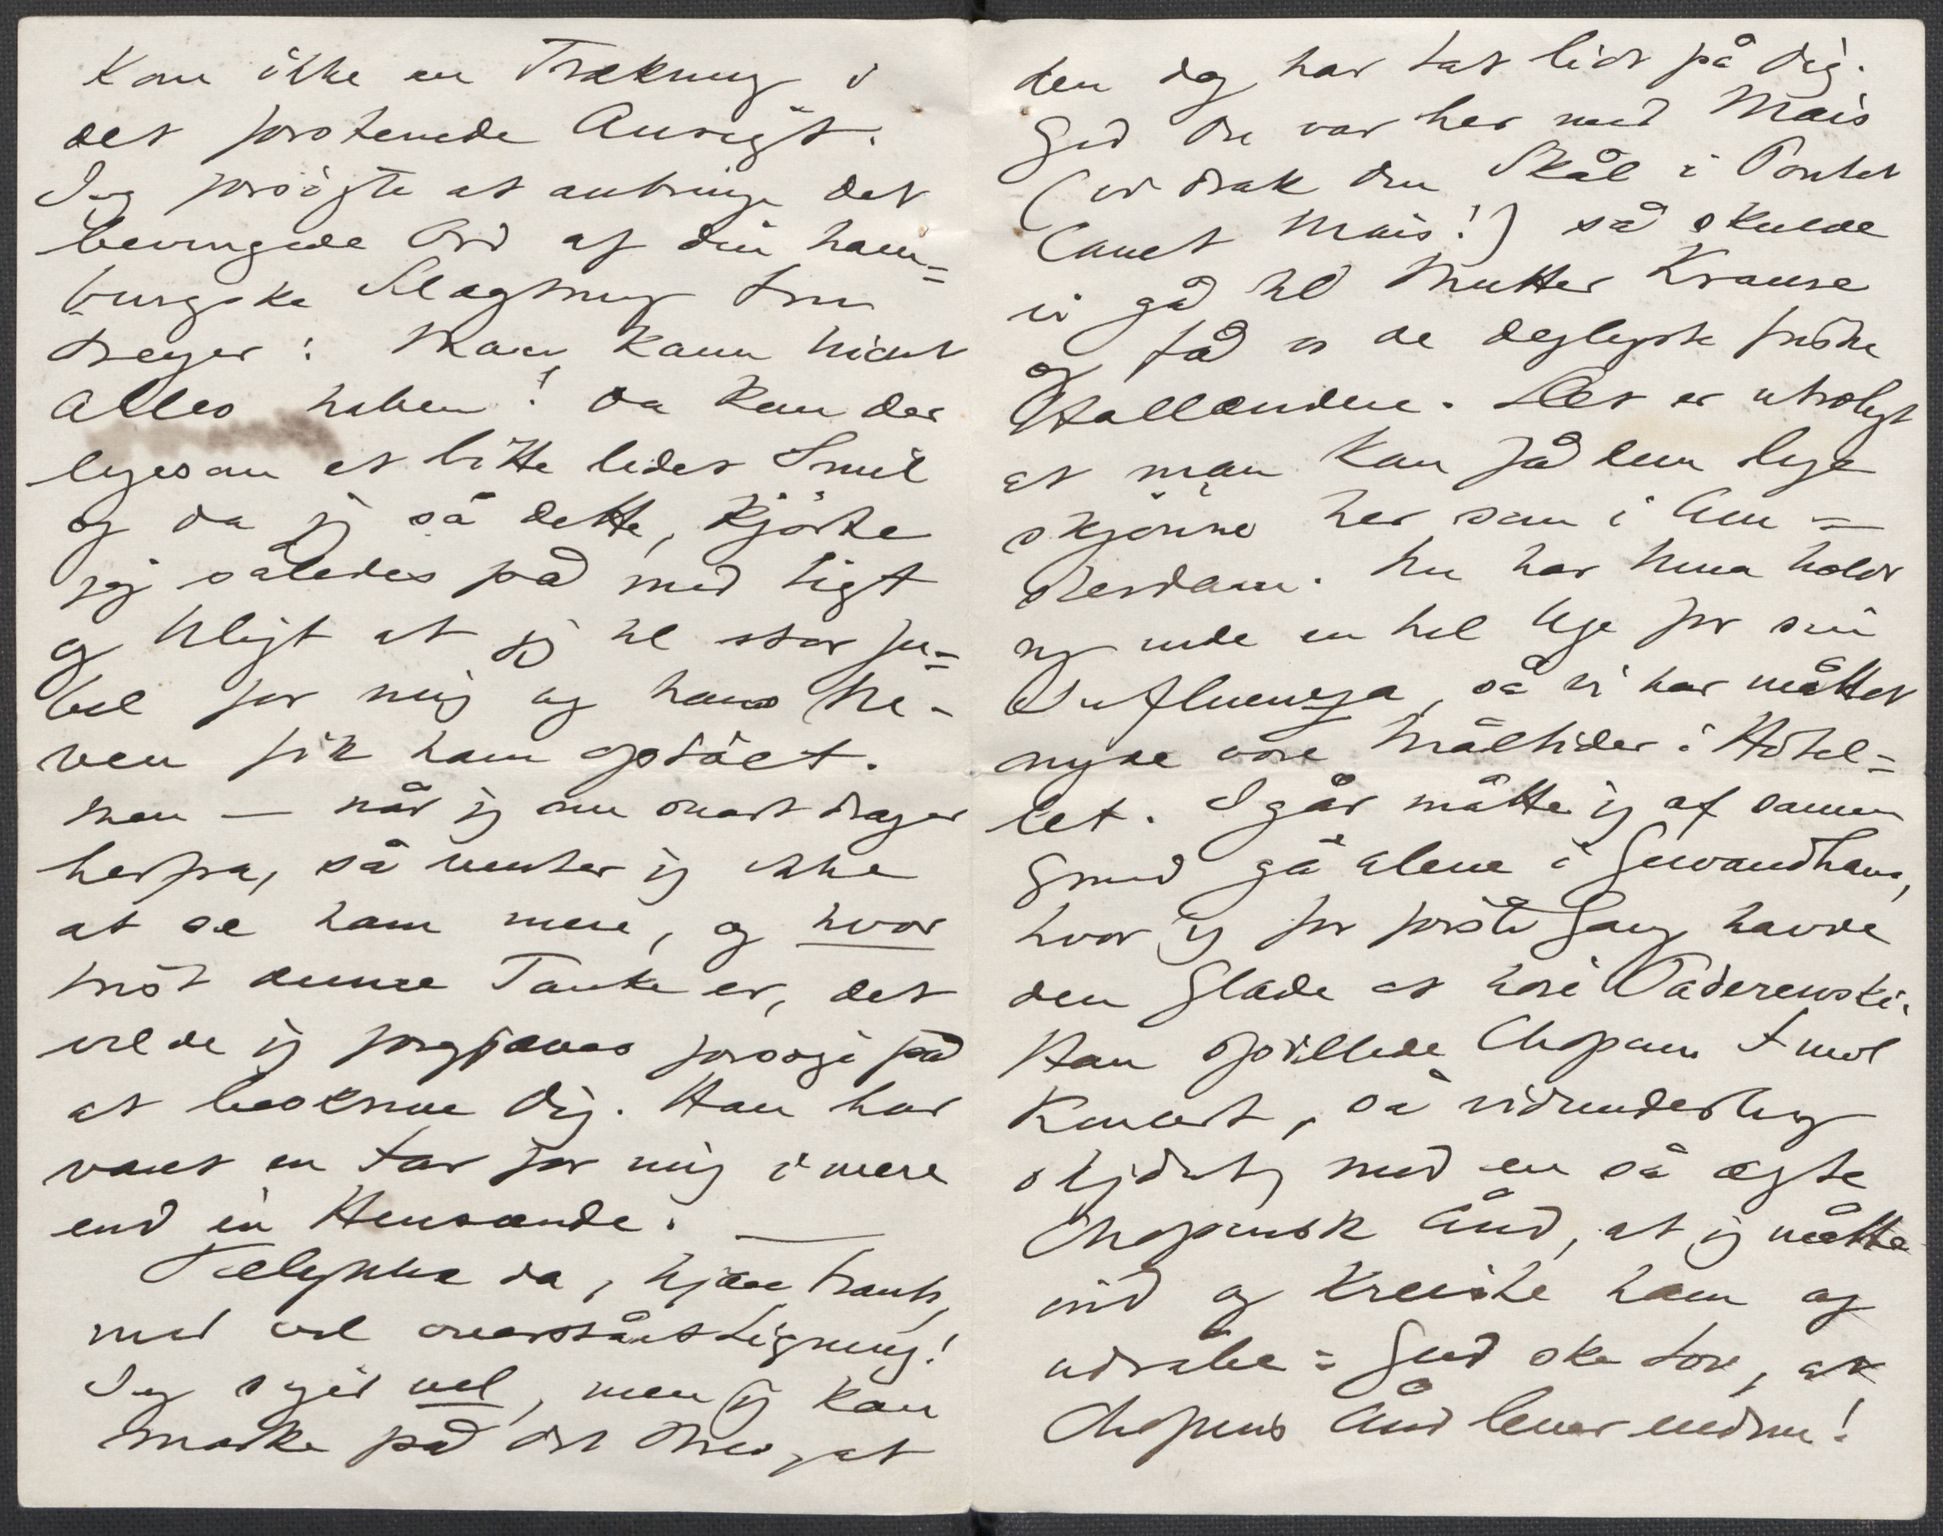 Kom ikke en Trækning i
det forstenede Ansigt.
Jeg forsögte at anbringe det
bevingede Ord af din ham=
burgske Slægtning Fru
Dreyer: Man kann nicht
Alles haben! Da kom der
ligesom et bitte lidet Smil
og da jeg så dette, kjörte
jeg således på med Ligt
og Uligt at jeg til stor Ju=
bel for mig og hans Ne-
veu fik ham optöet.
Men — når jeg nu snart drager
herfra, så venter jeg ikke
at se ham mere, og hvor
trist denne Tanke er, det
vilde jeg forgjæves forsøge på
at beskrive Dig. Han har
været en Far for mig i mere
end én Henseende. —
Tillykke da, kjære Frants,
med vel overstået Ligning!
Jeg siger vel, men jeg kan
mærke på dit Brev, at
den dog har tat lidt på Dig.
Gid Du var her med Mais
(vi drak din Skål i Pontet
Canet Mais!) så skulde
vi gå til Mutter Krause
og få os de dejligste friske
Hollændere. Det er utroligt
at man kan få dem lige
skjönne her som i Am=
sterdam. Nu har Nina holdt
sig inde en hel Uge for sin
Influenza, så vi har måttet
nyde vore Måltider i Hôtel=
let. Igår måtte jeg af samme
Grund gå alene i Gewandhaus,
hvor jeg for förste Gang havde
den Glæde at höre Paderewski.
Han spillede Chopins F mol
Koncert, så vidunderlig
skjönt, med en så ægte
Chopinsk Ånd, at jeg måtte
ind og kreiste ham og
udråbe: Gud ske Lov, at
Chopins Ånd lever endnu!